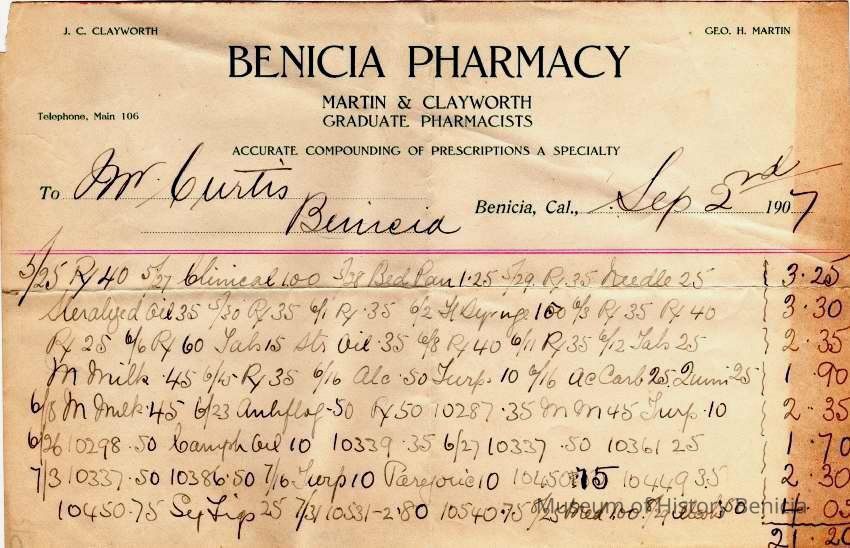 J. C. CLAYWORTH GEO. H. MARTIN
BENICIA PHARMACY
MARTIN & CLAYWORTH
GRADUATE PHARMACISTS
Telephone, Main 106
ACCURATE COMPOUNDING OF PRESCRIPTIONS A SPECIALTY
To Mr Curtis
Benicia Benicia, Cal., Sep 2nd 1907
5/25 Rx 40 5/27 Clinical 1.00 5/28 Bed Pan 1.25 5/29 Rx 35 Needle 25 3.25
Steralized Oil 35 5/30 Rx 35 6/1 Rx .35 6/2 H Syringe 100 6/3 Rx 35 Rx 40 3.30
Rx 25 6/6 Rx 60 Tabs 15 Oil .35 6/8 Rx 40 6/11 Rx 35 6/12 Tabs 25 2.35
M Milk .45 6/15 Rx 35 6/16 Alc .50 Turp. 10 6/16 Ac Carb 25 Quin 25 1.90
6/8 M Milk .45 6/23 Antiflog .50 Rx 50 10287 .35 M M 45 Turp .10 2.35
6/26 10298 .50 Camph Oil 10 10339 .35 6/27 10337 .50 10361 25 1.70
7/3 10337 .50 10386 .50 7/6 Turp 10 Paregoric 10 10450 75 10449 35 2.30
10450 .75 Sy Figs 25 7/31 10531 - 2.80 10540 .75 8/25 Med 1.00 .05
21.20
Museum of History Benicia